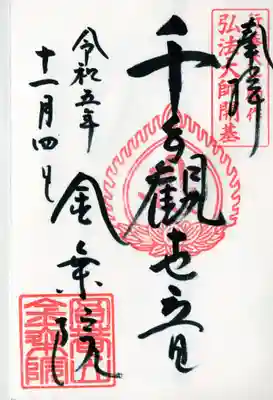 奉拝
弘法大師開基
千手観世音
令和五年
十一月四日
金乗院